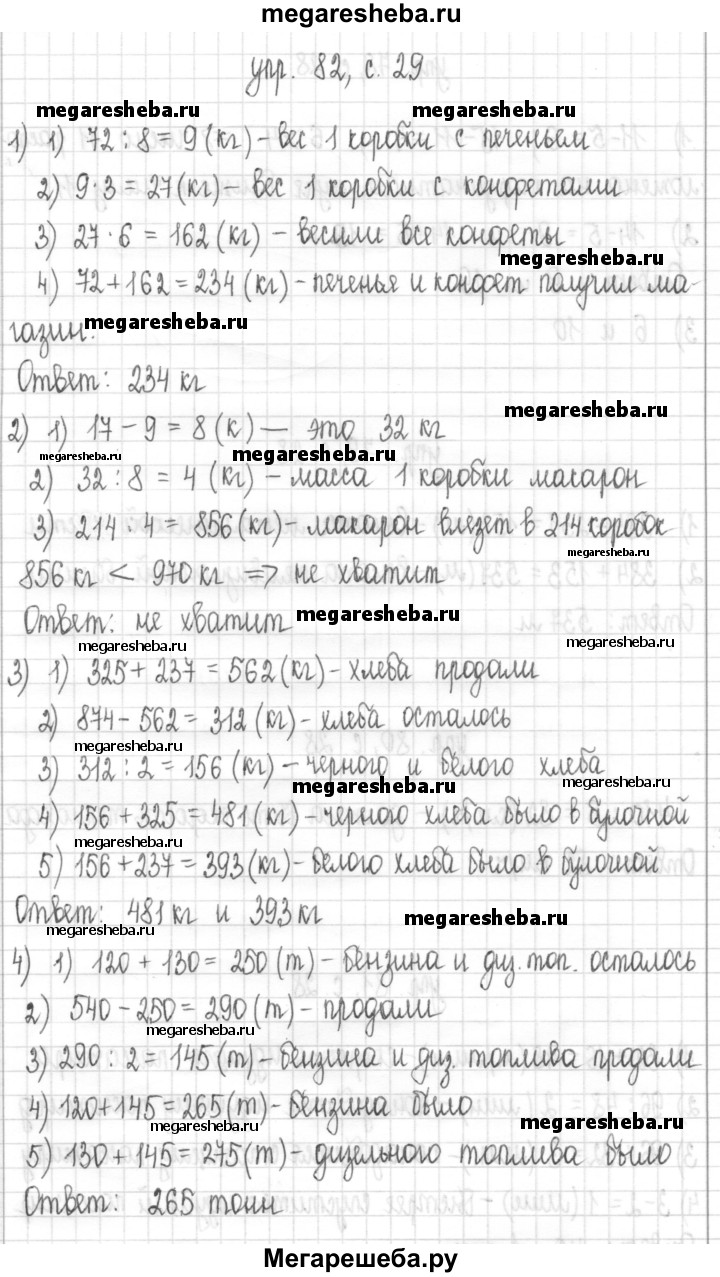 megaresheba.ru
упр. 82, с. 29
megaresheba.ru megaresheba.ru
1) 1) 72 : 8 = 9 (кг) – вес 1 коробки с печеньем
2) 9 · 3 = 27 (кг) – вес 1 коробки с конфетами
3) 27 · 6 = 162 (кг) – весили все конфеты
megaresheba.ru
4) 72 + 162 = 234 (кг) – печенья и конфет получил ма-
газин. megaresheba.ru
Ответ: 234 кг
megaresheba.ru
2) 1) 17 – 9 = 8 (к) — это 32 кг
megaresheba.ru megaresheba.ru
2) 32 : 8 = 4 (кг) – масса 1 коробки макарон
3) 214 · 4 = 856 (кг) – макарон влезет в 214 коробок
megaresheba.ru
856 кг < 970 кг ⇒ не хватит
Ответ: не хватит megaresheba.ru
megaresheba.ru megaresheba.ru
3) 1) 325 + 237 = 562 (кг) – хлеба продали
2) 874 – 562 = 312 (кг) – хлеба осталось
megaresheba.ru
3) 312 : 2 = 156 (кг) – черного и белого хлеба
megaresheba.ru megaresheba.ru
4) 156 + 325 = 481 (кг) – черного хлеба было в булочной
megaresheba.ru
5) 156 + 237 = 393 (кг) – белого хлеба было в булочной
Ответ: 481 кг и 393 кг megaresheba.ru
megaresheba.ru
4) 1) 120 + 130 = 250 (т) – бензина и диз. топ. осталось
2) 540 – 250 = 290 (т) – продали
megaresheba.ru
3) 290 : 2 = 145 (т) – бензина и диз. топлива продали
4) 120 + 145 = 265 (т) – бензина было
megaresheba.ru megaresheba.ru
5) 130 + 145 = 275 (т) – дизельного топлива было
Ответ: 265 тонн
Мегарешеба.ру